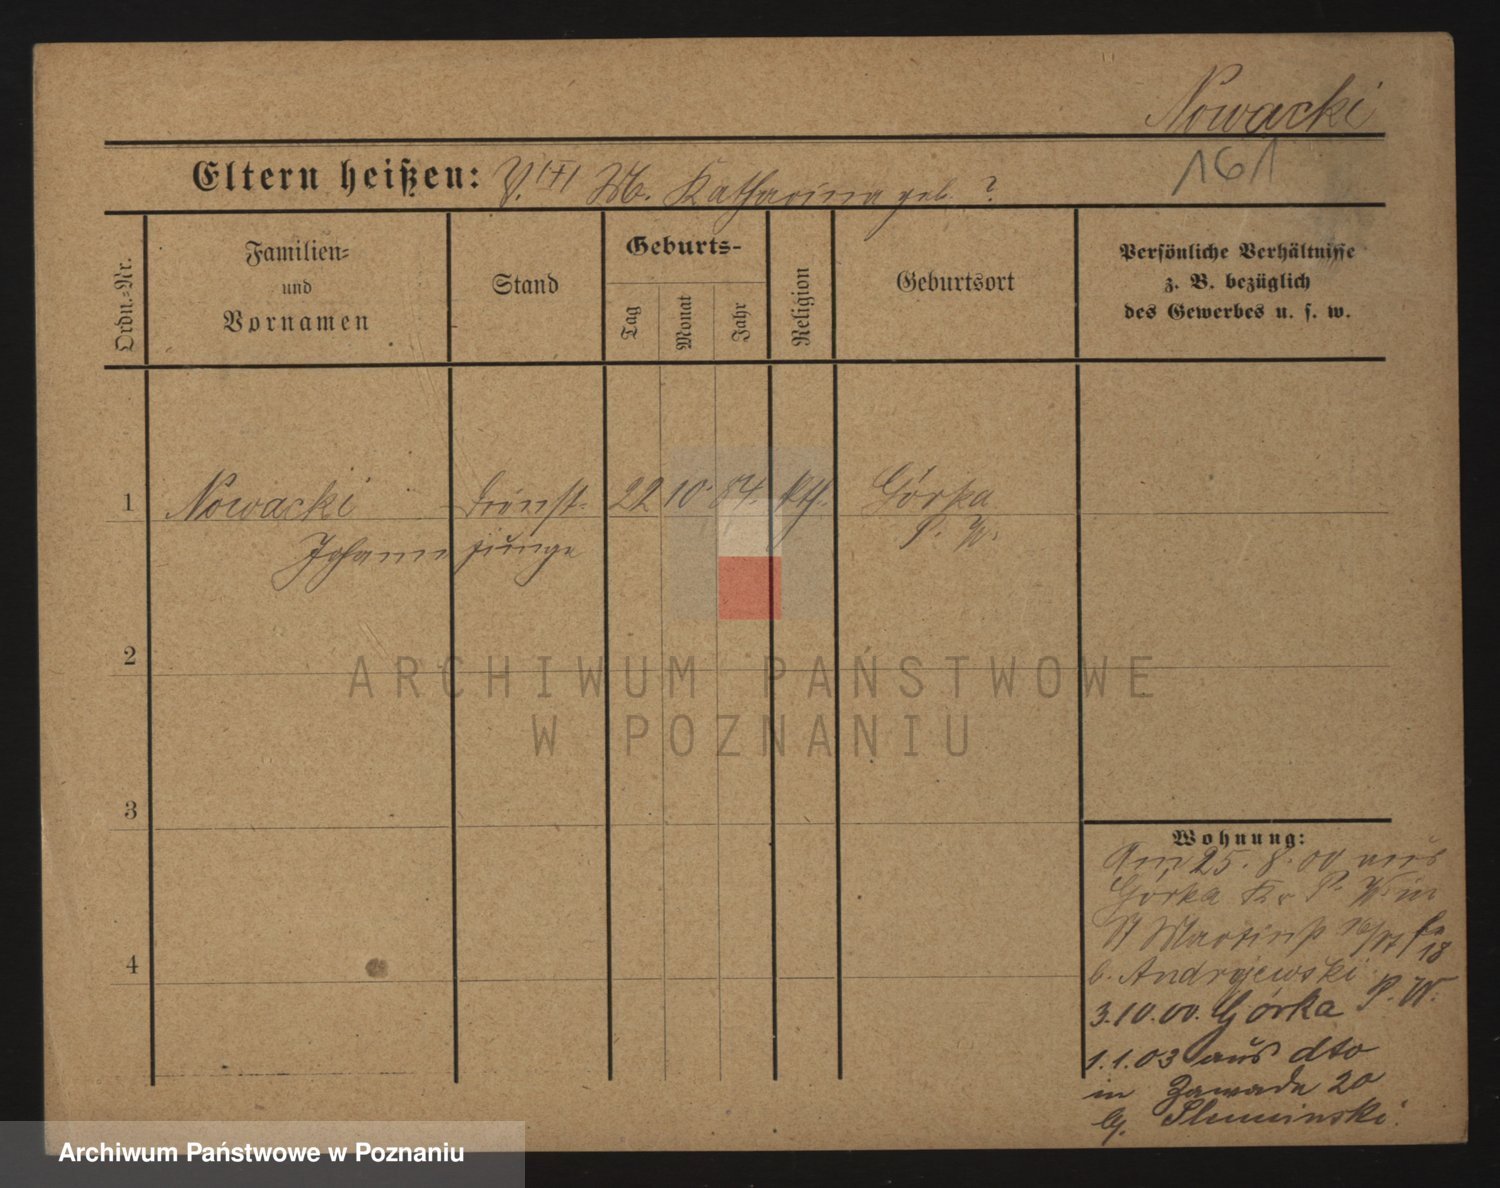 Nowacki
161
Eltern heißen: V. (†) M. Katharina geb. ?
Ordn.-Nr.
Familien-
und
Vornamen
Stand
Geburts-
Tag
Monat
Jahr
Religion
Geburtsort
Persönliche Verhältnisse
z. B. bezüglich
des Gewerbes u. s. w.
1 Nowacki Dienst- 22 10. 84. kth. Górka
Johann junge P. W.
2
3
4
Wohnung:
Am 25. 8. 00 aus
Górka Kr P. W in
St Martinst 16/17
18
b. Andrzejewski
3.10.00. Górka P. W.
1.1.03 aus dto
in Zawade 20
b. Sluminski.
ARCHIWUM PAŃSTWOWE
W POZNANIU
Archiwum Państwowe w Poznaniu